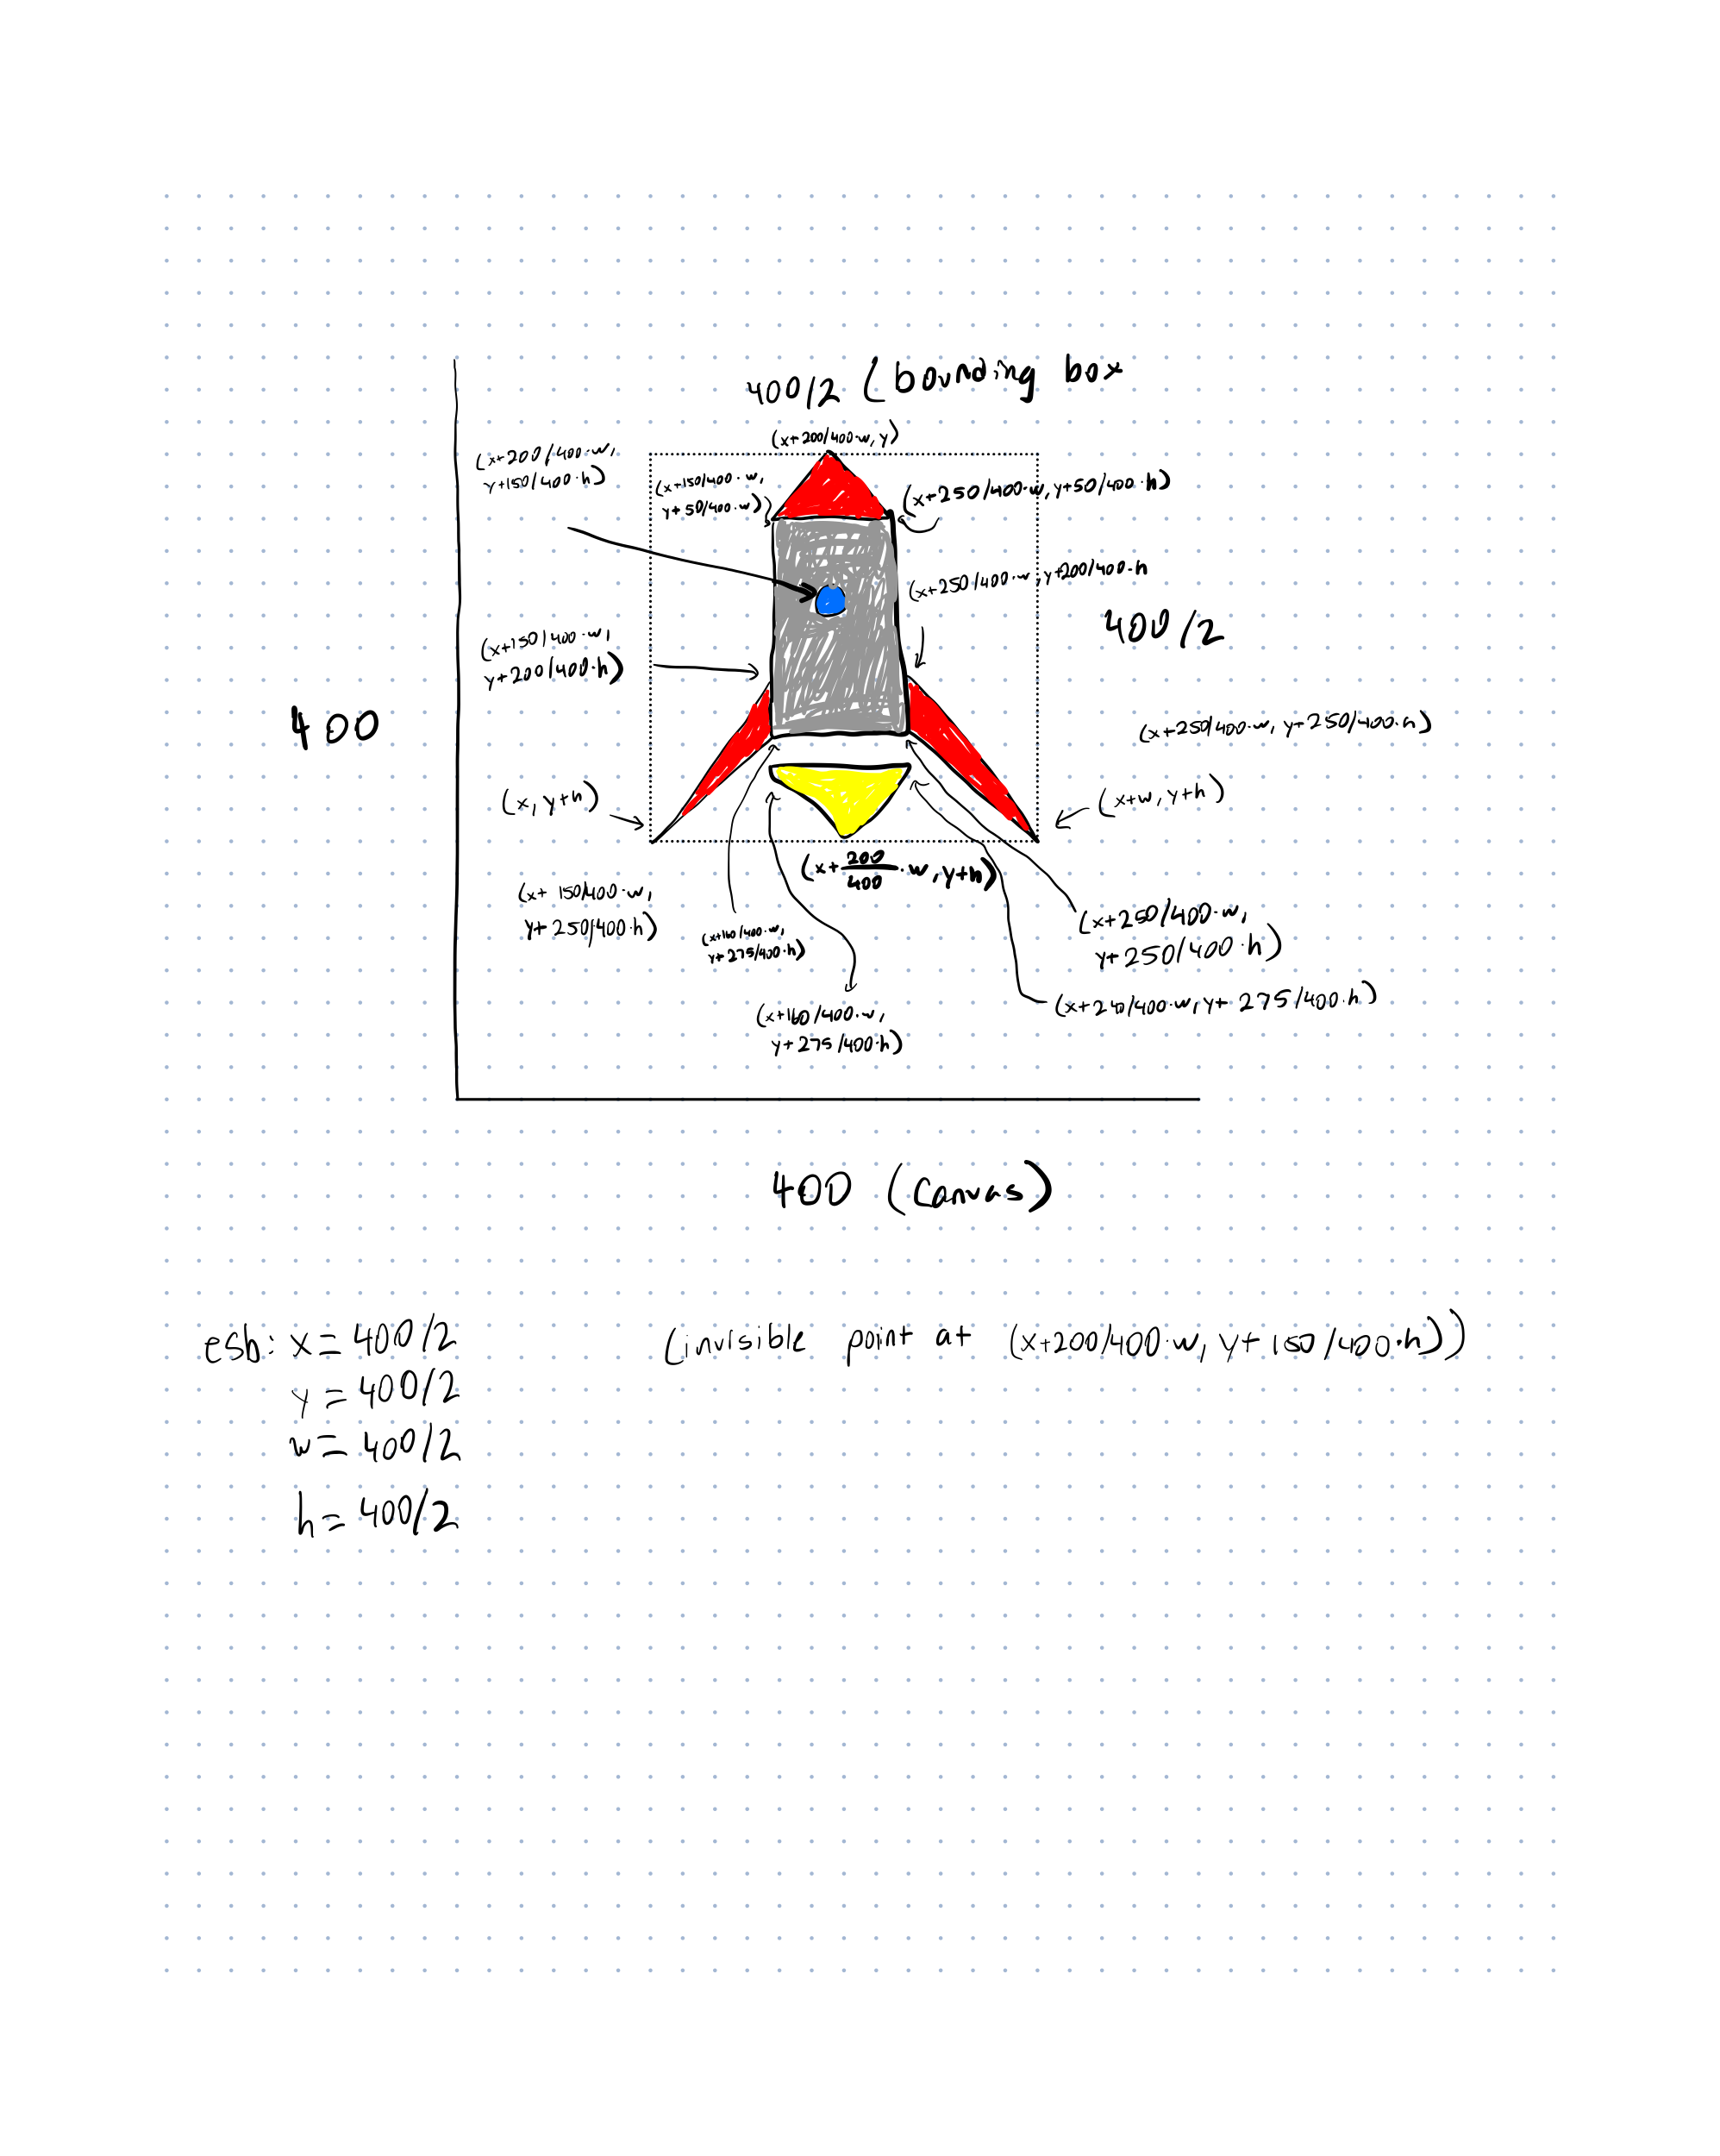 400/2 (bounding box
(x+200/400·w, y)
(x+200/400·w,
y+150/400·h)
(x+150/400·w,
y+50/400·w)
(x+250/400·w, y+50/400·h)
(x+250/400·w, y+200/400·h
400/2
(x+150/400·w,
y+200/400·h)
400
(x+250/400·w, y+250/400·h)
(x, y+h)
(x+w, y+h)
(x+200/400·w, y+h)
(x+ 150/400·w,
y+ 250/400·h)
(x+160/400·w,
y+275/400·h)
(x+250/400·w,
y+250/400·h)
(x+240/400·w, y+ 275/400·h)
(x+160/400·w,
y+275/400·h)
400 (Canvas)
esb: x= 400/2
y = 400/2
w= 400/2
h= 400/2
(invisible point at (x+200/400·w, y+150/400·h))